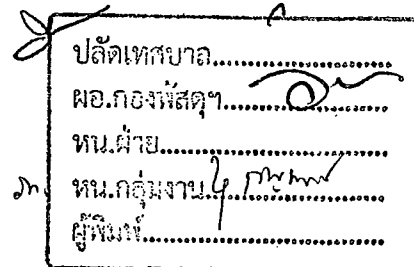 ปลัดเทศบาล....................
ผอ.กองพัสดุฯ....................
หน.ฝ่าย....................
หน.กลุ่มงาน....................
ผู้พิมพ์....................